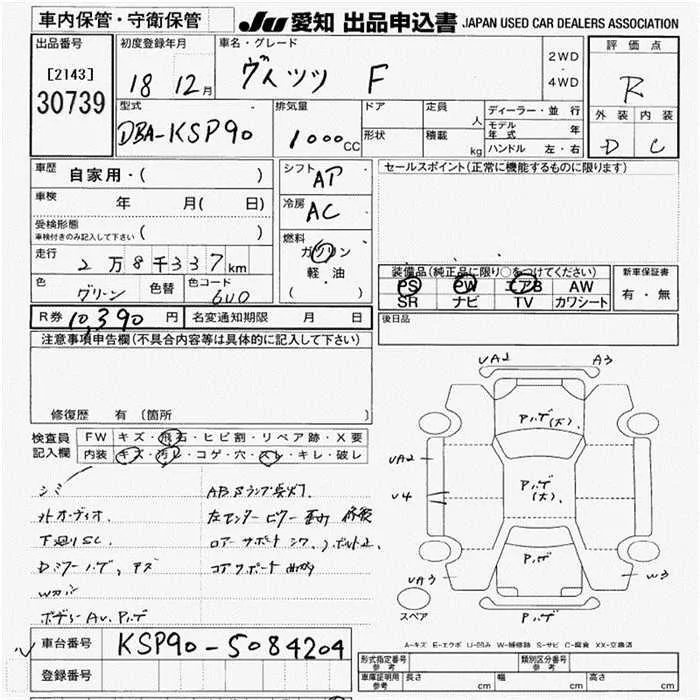 車内保管・守衛保管
JU 愛知 出品申込書 JAPAN USED CAR DEALERS ASSOCIATION
出品番号 [2143] 30739
初度登録年月 18 12月
車名・グレード ヴィッツ F
2WD ・ 4WD
評価点 R
外装 D 内装 C
型式 DBA-KSP90
排気量 1000CC
ドア 形状
定員 人 積載 kg
ディーラー・並行
モデル年式 年
ハンドル 左・右
車歴 自家用・( )
車検 年 月( 日)
受検形態 車検付きのみ記入して下さい ( )
走行 2万8千337km
色 グリーン 色替 色コード 6U0
シフト AT
冷房 AC
燃料 ガソリン 軽油 ( )
セールスポイント(正常に機能するものに限ります)
装備品(純正品に限り○をつけてください)
PS PW エアB AW
SR ナビ TV カワシート
新車保証書 有・無
R券 10,390円 名変通知期限 月 日
後日品
注意事項申告欄(不具合内容等は具体的に記入して下さい)
修復歴 有 (箇所
検査員記入欄
FW キズ・飛石・ヒビ割・リペア跡・X要
内装 キズ・汚レ・コゲ・穴・スレ・キレ・破レ
シミ
外オーディオ
下廻りSC
Dミラーハゲ,キズ
Wカン
ボディーAU,Pハゲ
ABSランプ点灯
左センターピラー 修復
ロアーサポートシワ,
コアサポート曲り
UA2 A3
Pハゲ(大)
UA2
U4
Pハゲ(大)
Pハゲ
UA3 W3
Pハゲ
スペア
A-キズ E-エクボ U-凹み W-補修跡 S-サビ C-腐食 XX-交換済
車台番号 KSP90-5084204
登録番号
形式指定番号 参考 類別区分番号 参考
車庫証明用 参考 長さ cm 幅 cm 高さ cm